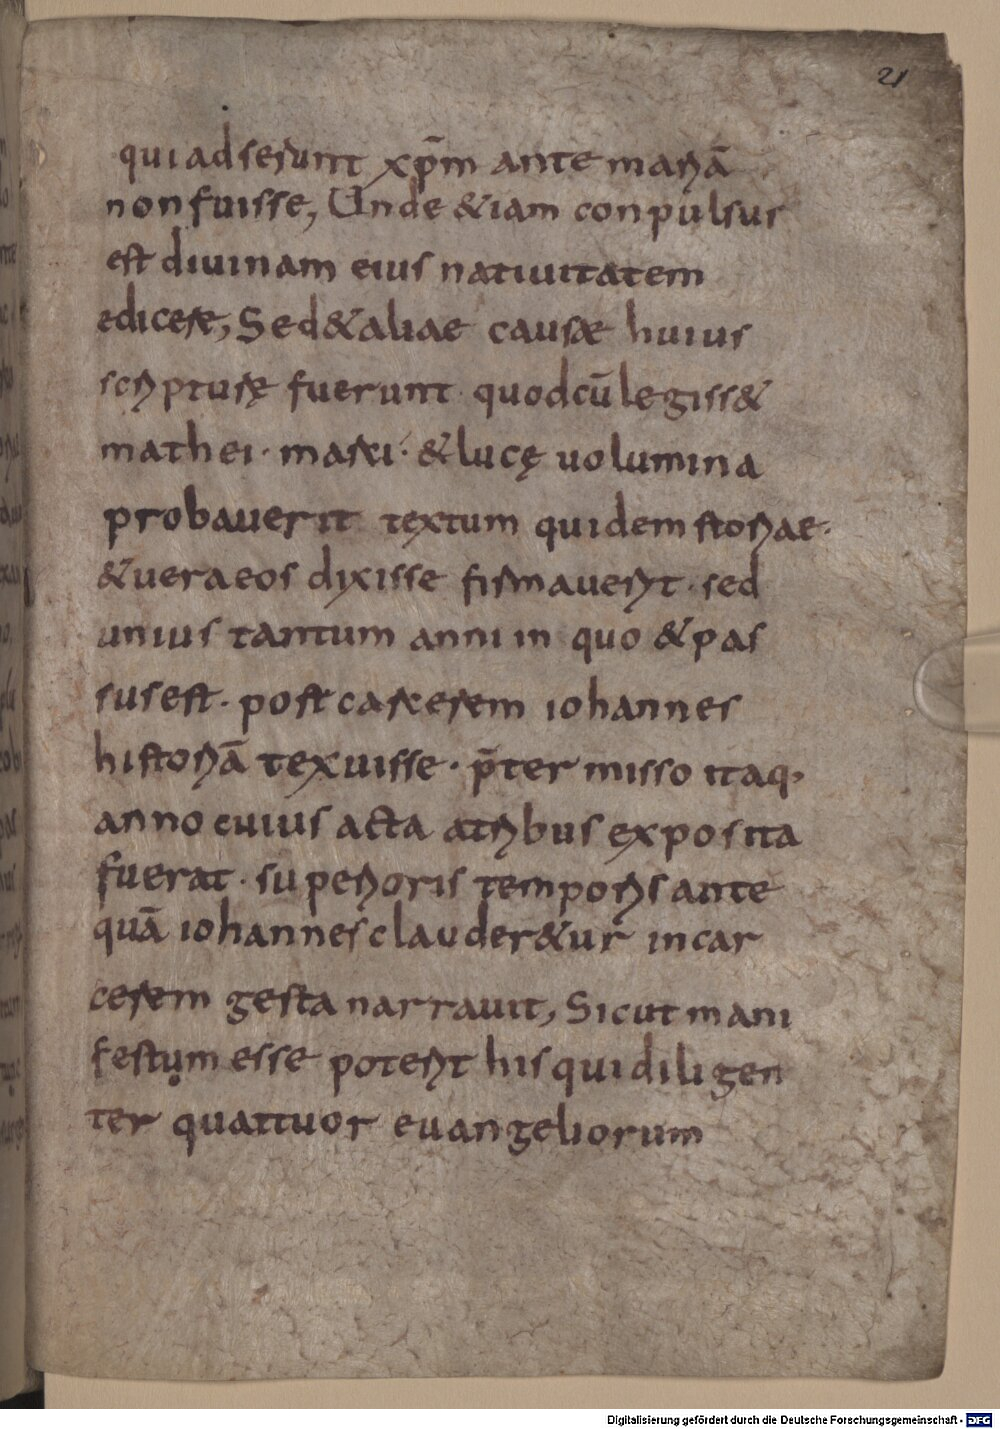 21
qui adserunt xp̄m ante mariā
non fuisse, Unde &iam conpulsus
est divinam eius nativitatem
edicere, Sed & aliae causæ huius
scripturę fuerunt quod cū legiss&
mathei · marci · & lucę volumina
probaverit textum quidem storiae·
& vera eos dixisse firmaverit · sed
unius tantum anni in quo & pas
sus est · post carcerem iohannes
historiā texuisse · p̄termisso itaq,
anno cuius acta atribus exposita
fuerat · superioris temporis ante
quā iohannes clauder&ur in car
cerem gesta narravit, Sicut mani
festum esse poterit his qui diligen
ter quattuor evangeliorum
Digitalisierung gefördert durch die Deutsche Forschungsgemeinschaft - DFG